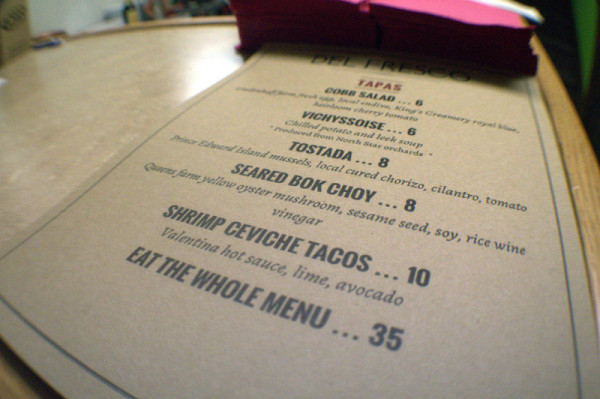 DEL FRESCO
TAPAS
COBB SALAD ... 6
farm, egg, local endive, King's Creamery royal blue,
heirloom cherry tomato
VICHYSSOISE ... 6
Chilled potato and leek soup
* Produced from North Star orchards *
TOSTADA ... 8
Prince Edward Island mussels, local cured chorizo, cilantro, tomato
SEARED BOK CHOY ... 8
Queens farm yellow oyster mushroom, sesame seed, soy, rice wine
vinegar
SHRIMP CEVICHE TACOS ... 10
Valentina hot sauce, lime, avocado
EAT THE WHOLE MENU ... 35